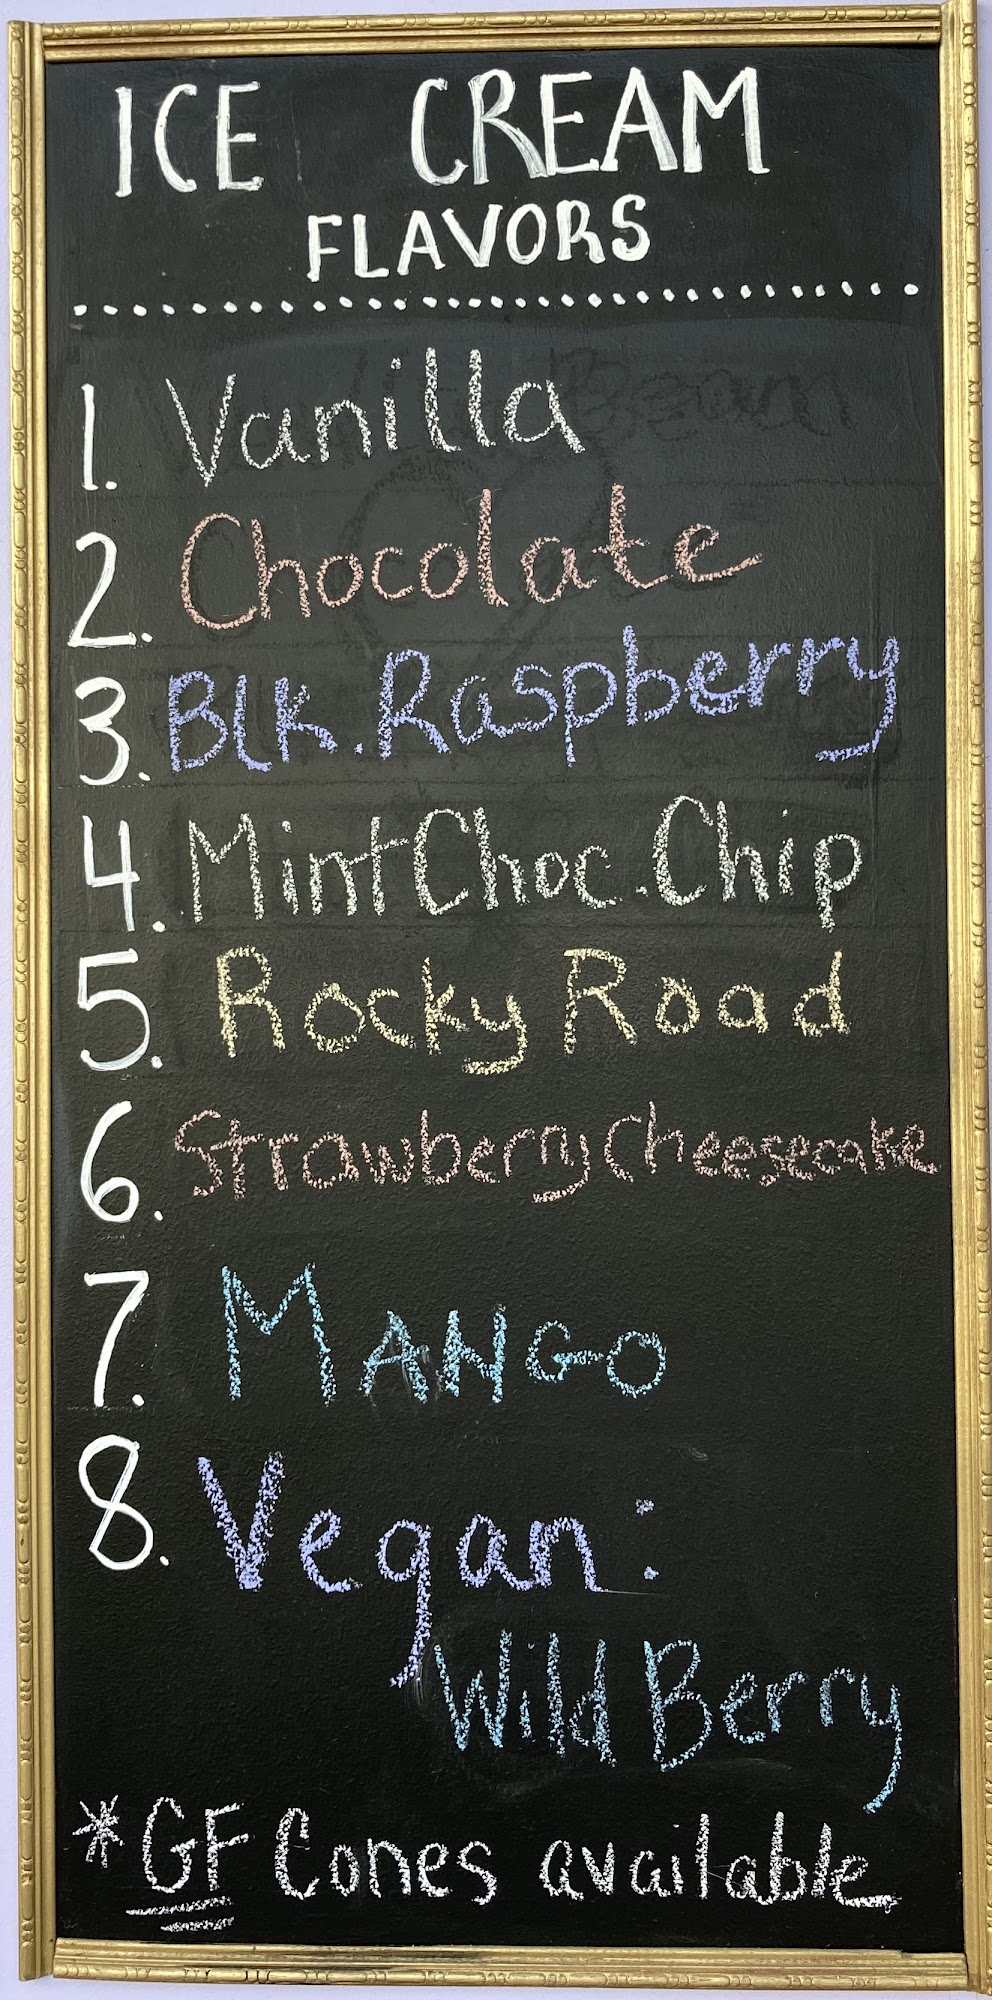 ICE CREAM
FLAVORS
1. Vanilla
2. Chocolate
3. Blk. Raspberry
4. Mint Choc. Chip
5. Rocky Road
6. Strawberry Cheesecake
7. MANGO
8. Vegan:
Wild Berry
*GF Cones available